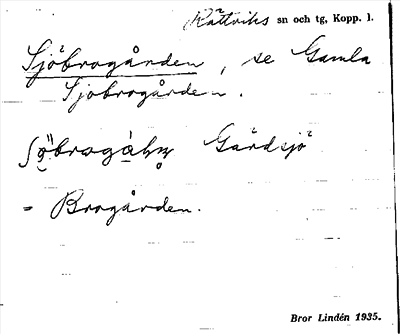 Rättviks sn och tg, Kopp. l.
Sjöbrogården, se Gamla
Sjöbrogården.
Gårdsjö
= Brogården.
Bror Lindén 1935.